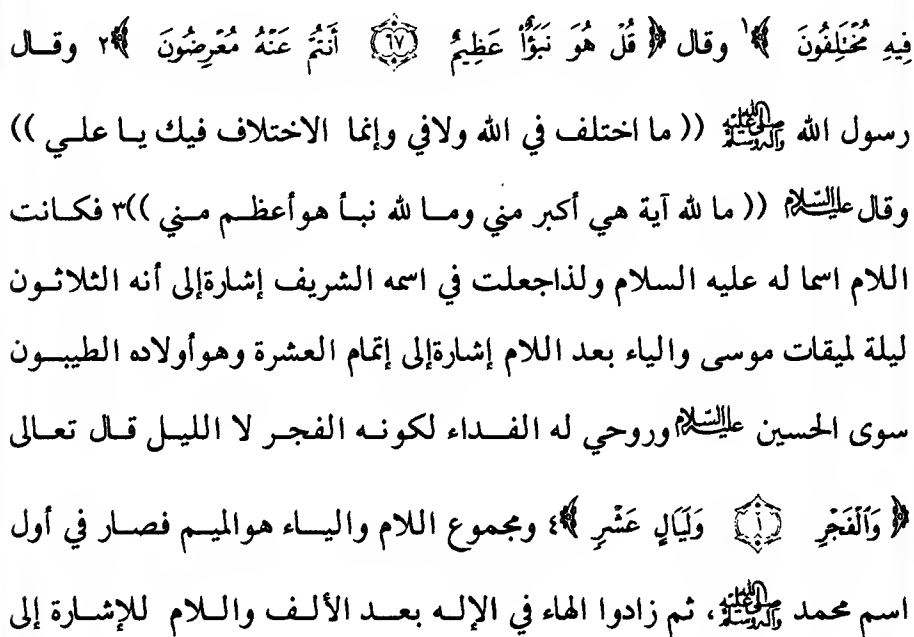 فِيهِ مُخْتَلِفُونَ ﴾١ وقال ﴿ قُلْ هُوَ نَبَؤٌاْ عَظِيمٌ ﴿٦٧﴾ أَنتُمْ عَنْهُ مُعْرِضُونَ ﴾٢ وقــال
رسول الله ﷺ (( ما اختلف في الله ولافي وإنما الاختلاف فيك يــا علــي ))
وقال عليه السلام (( ما لله آية هي أكبر مني ومــا لله نبــأ هوأعظــم مــني ))٣ فكــانت
اللام اسما له عليه السلام ولذاجعلت في اسمه الشريف إشارةإلى أنه الثلاثــون
ليلة لميقات موسى والياء بعد اللام إشارةإلى إتمام العشرة وهوأولاده الطيبــون
سوى الحسين عليه السلام وروحي له الفــداء لكونــه الفجــر لا الليــل قــال تعــالى
﴿ وَٱلْفَجْرِ ﴿١﴾ وَلَيَالٍ عَشْرٍ ﴾٤ ومجموع اللام واليــاء هوالميــم فصــار في أول
اسم محمد ﷺ، ثم زادوا الهاء في الإلــه بعــد الألــف والــلام للإشــارة إلى